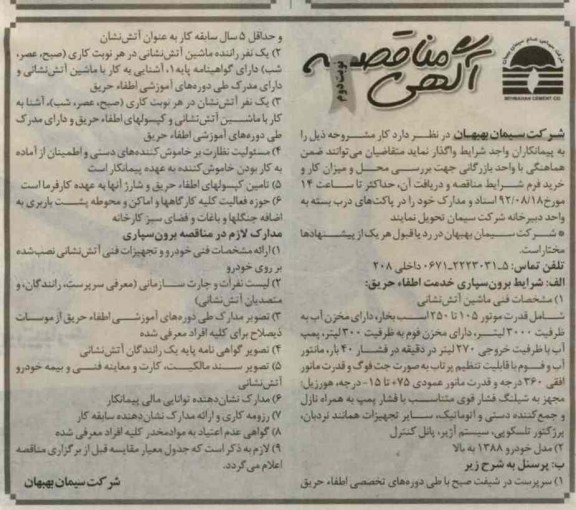 آگهی مناقصه
نوبت دوم
BEHBAHAN CEMENT CO.
شرکت سیمان بهبهان در نظر دارد کار مشروحه ذیل را
به پیمانکاران واجد شرایط واگذار نماید متقاضیان می‌توانند ضمن
هماهنگی با واحد بازرگانی جهت بررسی محل و میزان کار و
خرید فرم شرایط مناقصه و دریافت آن، حداکثر تا ساعت ۱۴
مورخ ۹۲/۰۸/۱۸ اسناد و مدارک خود را در پاکت‌های درب بسته به
واحد دبیرخانه شرکت سیمان تحویل نمایند
شرکت سیمان بهبهان در رد یا قبول هر یک از پیشنهادها
مختار است.
تلفن تماس: ۵-۲۲۲۳۰۳۱-۰۶۷۱ داخلی ۲۰۸
الف: شرایط برون‌سپاری خدمت اطفاء حریق:
۱) مشخصات فنی ماشین آتش‌نشانی
شامل قدرت موتور ۱۰۵ تا ۲۵۰ اسب بخار، دارای مخزن آب به
ظرفیت ۳۰۰۰ لیتر، دارای مخزن فوم به ظرفیت ۳۰۰ لیتر، پمپ
آب با ظرفیت خروجی ۲۷۰ لیتر در دقیقه در فشار ۴۰ بار، مانتور
آب و فوم با قابلیت تنظیم پرتاب به صورت جت فوگ و قدرت مانور
افقی ۳۶۰ درجه و قدرت مانور عمودی ۷۵+ تا ۱۵- درجه، هوزریل:
مجهز به شیلنگ فشار قوی متناسب با فشار پمپ به همراه نازل
و جمع‌کننده دستی و اتوماتیک، سایر تجهیزات همانند نردبان،
پرژکتور تلسکوپی، سیستم آژیر، پانل کنترل
۲) مدل خودرو ۱۳۸۸ به بالا
ب: پرسنل به شرح زیر
۱) سرپرست در شیفت صبح با طی دوره‌های تخصصی اطفاء حریق
و حداقل ۵ سال سابقه کار به عنوان آتش‌نشان
۲) یک نفر راننده ماشین آتش‌نشانی در هر نوبت کاری (صبح، عصر،
شب) دارای گواهینامه پایه ۱، آشنایی به کار با ماشین آتش‌نشانی و
دارای مدرک طی دوره‌های آموزشی اطفاء حریق
۳) یک نفر آتش‌نشان در هر نوبت کاری (صبح، عصر، شب)، آشنا به
کار با ماشین آتش‌نشانی و کپسولهای اطفاء حریق و دارای مدرک
طی دوره‌های آموزشی اطفاء حریق
۴) مسئولیت نظارت بر خاموش کننده‌های دستی و اطمینان از آماده
به کار بودن خاموش کننده به عهده پیمانکار است
۵) تامین کپسولهای اطفاء حریق و شارژ آنها به عهده کارفرما است
۶) حوزه فعالیت کلیه کارگاهها و اماکن و محوطه پشت باربری به
اضافه جنگلها و باغات و فضای سبز کارخانه
مدارک لازم در مناقصه برون‌سپاری
۱) ارائه مشخصات فنی خودرو و تجهیزات فنی آتش‌نشانی نصب شده
بر روی خودرو
۲) لیست نفرات و چارت سازمانی (معرفی سرپرست، رانندگان، و
متصدیان آتش‌نشانی)
۳) تصویر مدارک طی دوره‌های آموزشی اطفاء حریق از موسسات
ذیصلاح برای کلیه افراد معرفی شده
۴) تصویر گواهی نامه پایه یک رانندگان آتش‌نشانی
۵) تصویر سند مالکیت، کارت و معاینه فنی و بیمه خودرو
آتش‌نشانی
۶) مدارک نشان‌دهنده توانایی مالی پیمانکار
۷) رزومه کاری و ارائه مدارک نشان‌دهنده سابقه کار
۸) گواهی عدم اعتیاد به موادمخدر کلیه افراد معرفی شده
۹) لازم به ذکر است که جدول معیار مقایسه قبل از برگزاری مناقصه
اعلام می‌گردد.
شرکت سیمان بهبهان